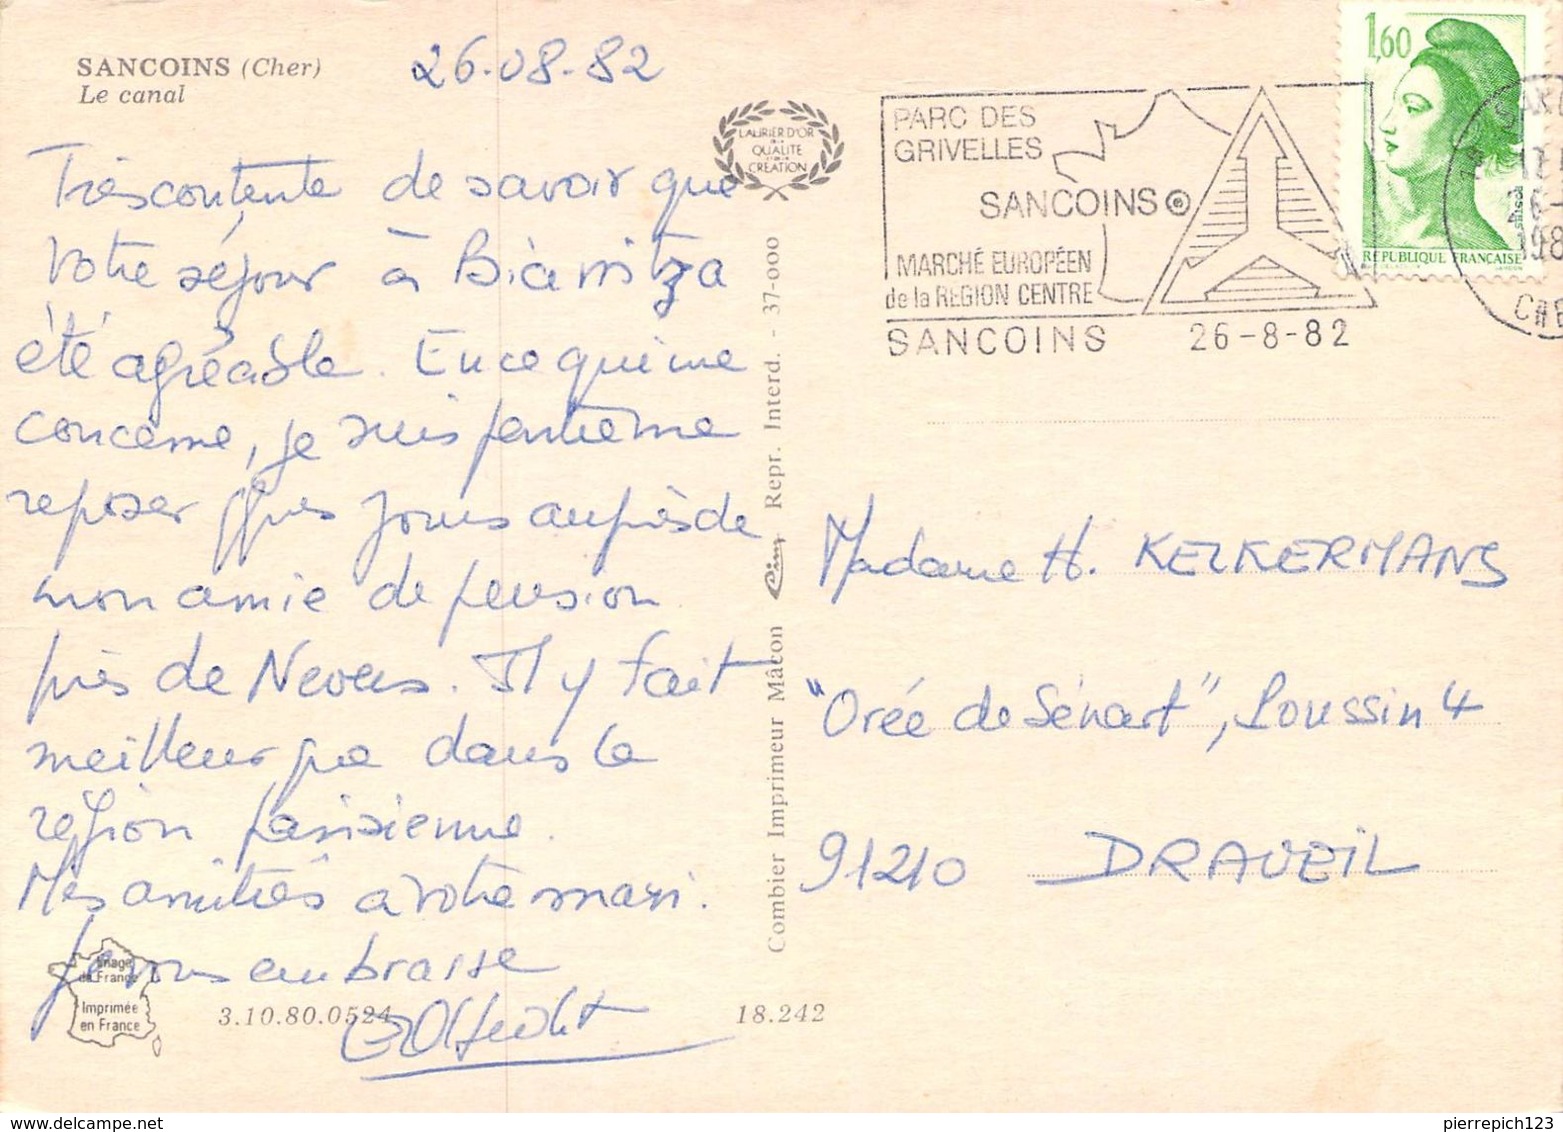 SANCOINS (Cher)
Le canal
26-08-82
Très contente de savoir que
votre séjour à Biarritz a
été agréable. En ce qui me
concerne, je suis
reposer qques jours auprès de
mon amie de pension
près de Nevers. Il y fait
meilleur que dans la
région parisienne.
Mes amitiés à votre mari.
Je vous embrasse
Image
de France
Imprimée
en France
3.10.80.0524
18.242
LAURIER D'OR
DE LA
QUALITÉ
CRÉATION
Combier Imprimeur Mâcon Cim Repr. Interd. - 37-000
PARC DES
GRIVELLES
SANCOINS
MARCHÉ EUROPÉEN
de la RÉGION CENTRE
SANCOINS 26-8-82
1,60
RÉPUBLIQUE FRANÇAISE
POSTES
Madame H. KELKERMANS
"Orée de Sénart", Poussin 4
91210 DRAVEIL
pierrepich123